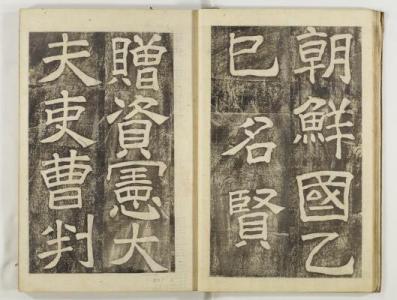 朝鮮國乙
巳名賢
贈資憲大
夫吏曹判